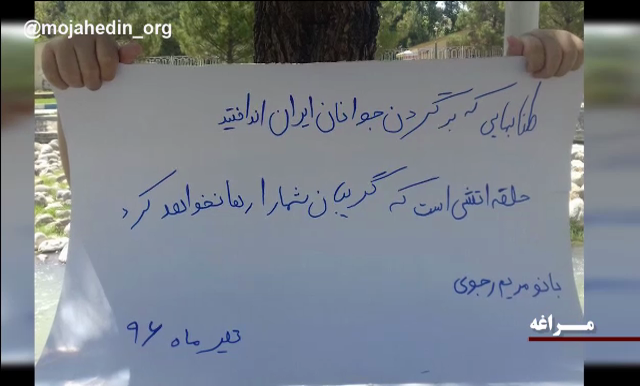 @mojahedin_org
طنابهایی که بر گردن جوانان ایران انداختید
حلقه اتشی است که گریبان شما را رها نخواهد کرد
بانو مریم رجوی
تیر ماه ۹۶
مراغه